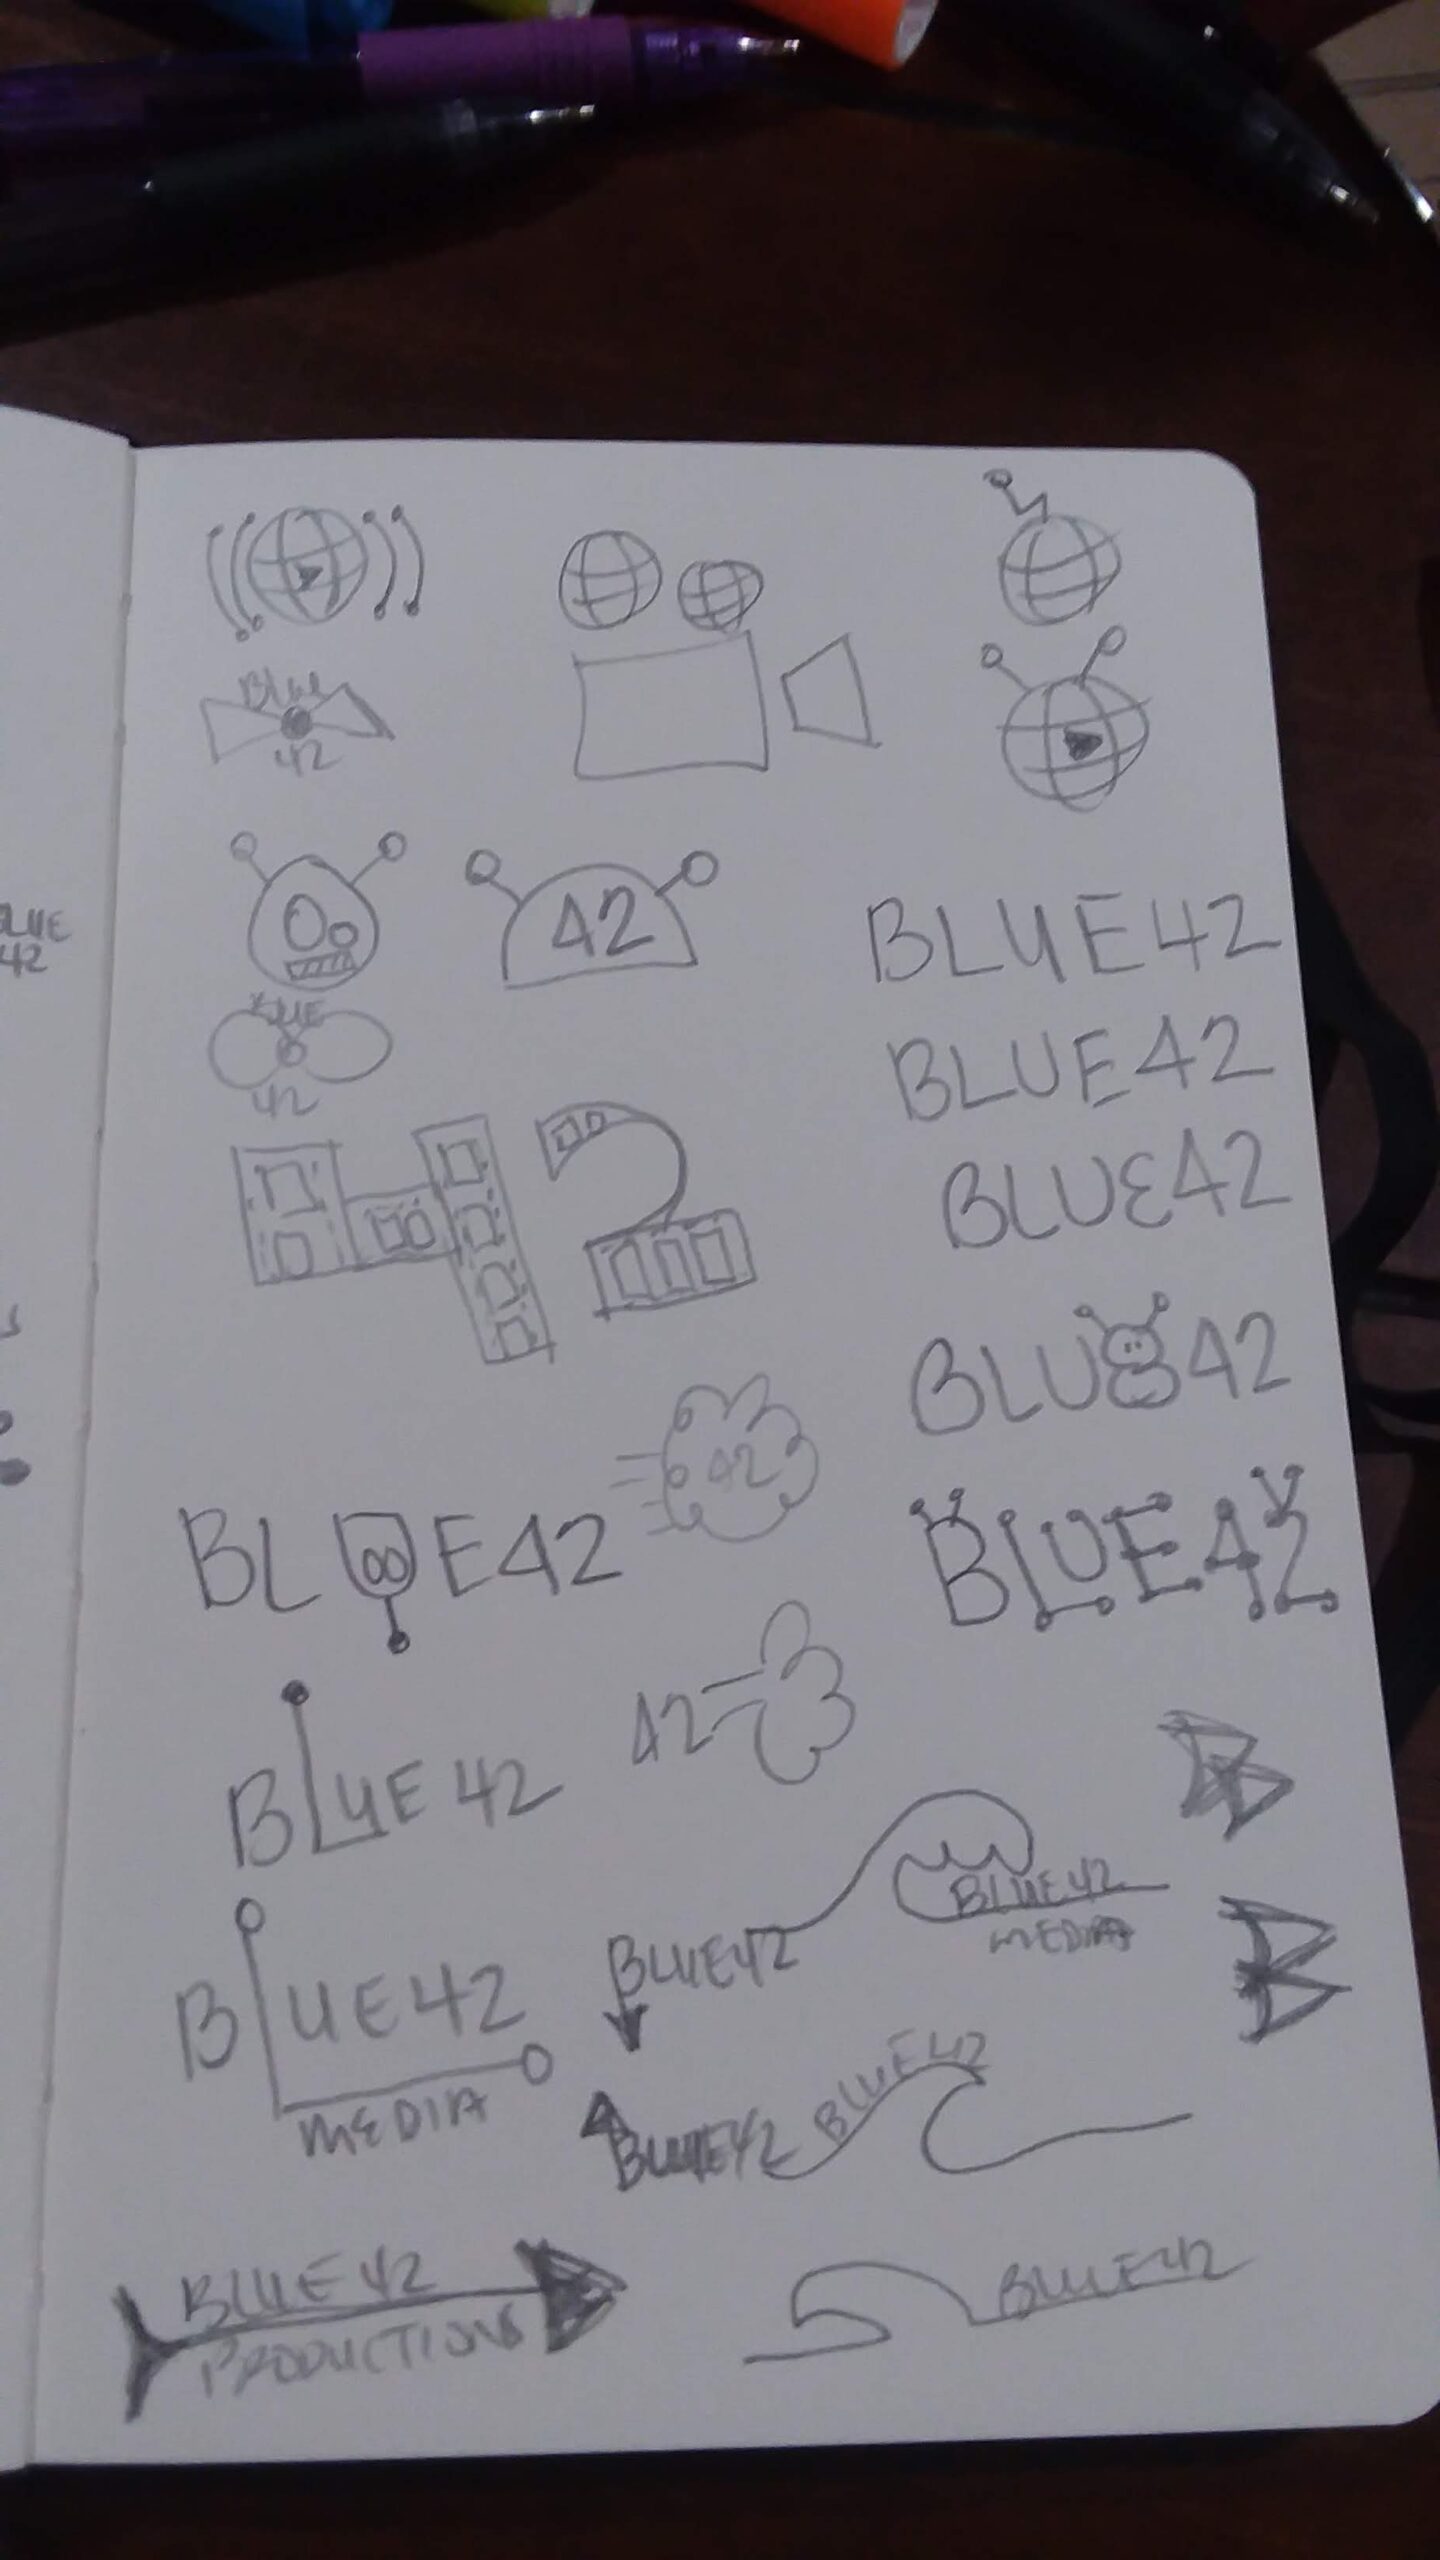 BLUE
42
BLUE
42
42
BLUE42
BLUE
42
BLUE42
BLUE42
42
BLU 42
42
BLUE42
BLUE42
42
BLUE42
B
BLUE42
MEDIA
BLUE42
B
BLUE42
MEDIA
BLUE42
BLUE42
BLUE42
PRODUCTIONS
BLUE42